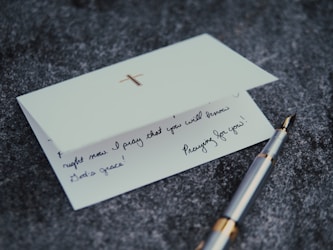 right now. I pray that you will know
God's grace!
Praying for you!